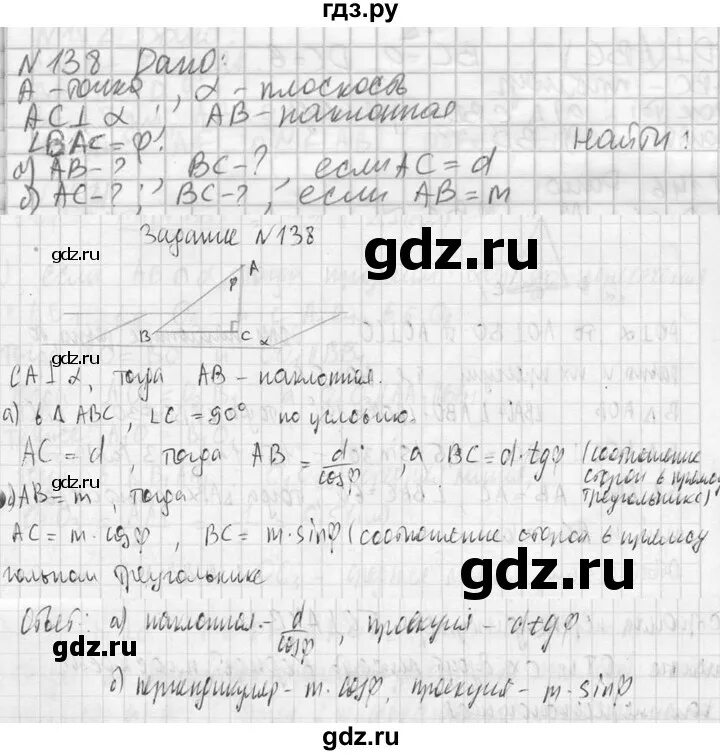 гдз.ру
N138 Дано:
A - точка, α - плоскость
AC⊥α; AB - наклонная
∠BAC = φ. Найти:
а) AB-?, BC-?, если AC = d
б) AC-?; BC-?, если AB = m
gdz.ru
Задание N138
gdz.ru
gdz.ru
A
φ
B
C
α
gdz.ru
CA⊥α, тогда AB - наклонная.
а) в ΔABC, ∠C = 90° по условию.
AC = d, тогда AB = d/cosφ, а BC = d·tgφ (соотношение
сторон в прямоу
треугольнике)
gdz.ru
б) AB = m, тогда
AC = m·cosφ, BC = m·sinφ (соотношение сторон в прямоу
гольном треугольнике
Ответ: а) наклонная - d/cosφ, проекция - d tgφ
gdz.ru
gdz.ru
б) перпендикуляр - m·cosφ, проекция - m·sinφ